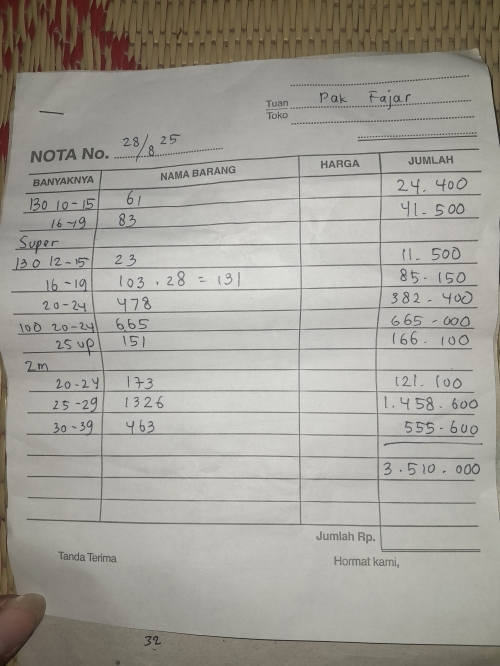 Tuan Pak Fajar
Toko
NOTA No. 28/8 25
BANYAKNYA NAMA BARANG HARGA JUMLAH
130 10-15 61 24.400
16-19 83 41.500
Super
130 12-15 23 11.500
16-19 103.28 = 131 85.150
20-24 478 382.400
100 20-24 665 665.000
25 up 151 166.100
2m
20-24 173 121.100
25-29 1326 1.458.600
30-39 463 555.600
3.510.000
Jumlah Rp.
Tanda Terima Hormat kami,
32